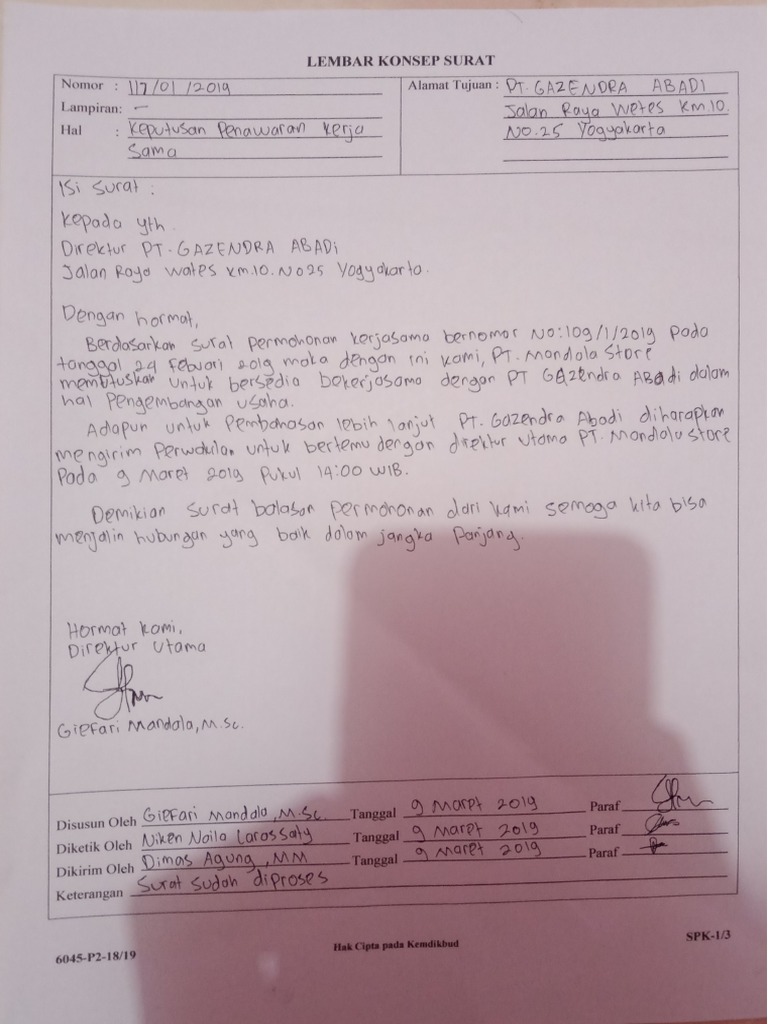 LEMBAR KONSEP SURAT
Nomor : 117/01/2019
Alamat Tujuan : PT. GAZENDRA ABADI
Lampiran: -
Jalan Raya Wetes Km.10.
Hal : Keputusan Penawaran Kerja
No.25 Yogyakarta
Sama
Isi Surat :
Kepada yth.
Direktur PT. GAZENDRA ABADI
Jalan Raya Wates Km.10. No25 Yogyakarta.
Dengan hormat,
Berdasarkan surat permohonan kerjasama bernomor No:109/1/2019 pada
tanggal 24 Febuari 2019 maka dengan ini kami, PT. Mandala Store
membtuskan untuk bersedia bekerjasama dengan PT GAZendra ABadi dalam
hal Pengembangan usaha.
Adapun untuk Pembahasan lebih lanjut PT. Gazendra Abadi diharapkan
mengirim Perwakilan untuk bertemu dengan direktur utama PT. Mandala Store
Pada 9 Maret 2019 Pukul 14:00 WIB.
Demikian surat balasan permohonan dari kami semoga kita bisa
menjalin hubungan yang baik dalam jangka Panjang.
Hormat kami,
Direktur Utama
Giefari Mandala, M.Sc.
Disusun Oleh Giefari Mandala, M.Sc. Tanggal 9 Maret 2019 Paraf
Diketik Oleh Niken Naila Larassaty Tanggal 9 Maret 2019 Paraf
Dikirim Oleh Dimas Agung, MM Tanggal 9 Maret 2019 Paraf
Keterangan Surat sudah diproses
Hak Cipta pada Kemdikbud
SPK-1/3
6045-P2-18/19